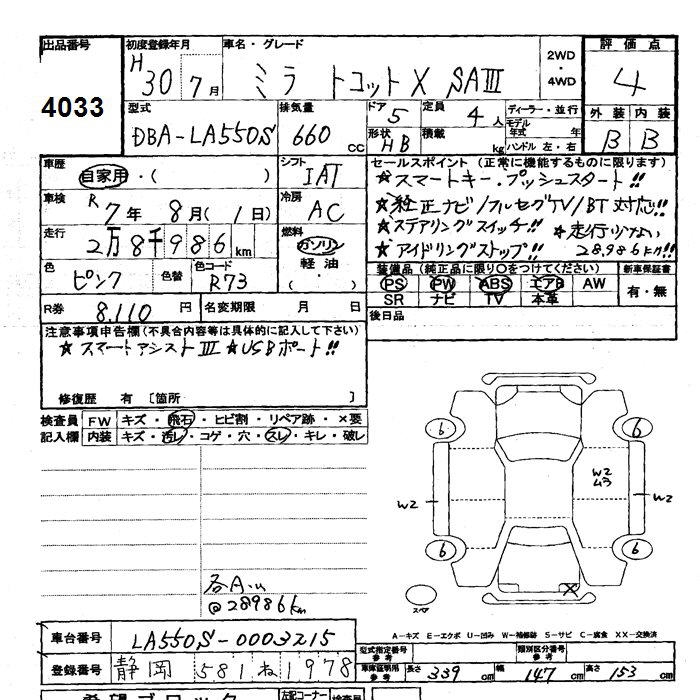 出品番号 初度登録年月 車名・グレード 2WD・4WD 評価点
4033 H30 7月 ミラ トコットX SAⅢ 4
型式 排気量 ドア 5 定員 4人 ディーラー・並行 外装 内装
DBA-LA550S 660cc 形状 HB 積載 kg モデル年式 年式 ハンドル 左・右 B B
車歴 自家用・( ) シフト IAT セールスポイント(正常に機能するものに限ります)
★スマートキー・プッシュスタート!!
車検 R7年 8月(1日) 冷房 AC ★純正ナビ/フルセグTV/BT対応!!
走行 2万8千986km 燃料 ガソリン・軽油・( ) ★ステアリングスイッチ!! ★走行少ない
★アイドリングストップ!! 28,986km!!
色 ピンク 色替 色コード R73 装備品(純正品に限り○をつけてください) 新車保証書
PS PW ABS エアB AW 有・無
SR ナビ TV 本革
R券 8,110円 名変期限 月 日 後日品
注意事項申告欄(不具合内容等は具体的に記入して下さい)
★スマートアシストⅢ ★USBポート!!
修復歴 有 [箇所 ]
検査員 FW キズ・飛石・ヒビ割・リペア跡・×要
記入欄 内装 キズ・汚レ・コゲ・穴・スレ・キレ・破レ
6 6
W2
W2 W2
6 6
スペア
@28986km
A-キズ E-エクボ U-凹み W-補修跡 S-サビ C-腐食 XX-交換済
車台番号 LA550S-0003215 型式指定番号 参考 類別区分番号 参考
登録番号 静岡 581 ね1978 車庫証明用 参考 長さ 339cm 幅 147cm 高さ 153cm
希望ブロック 左記コーナー